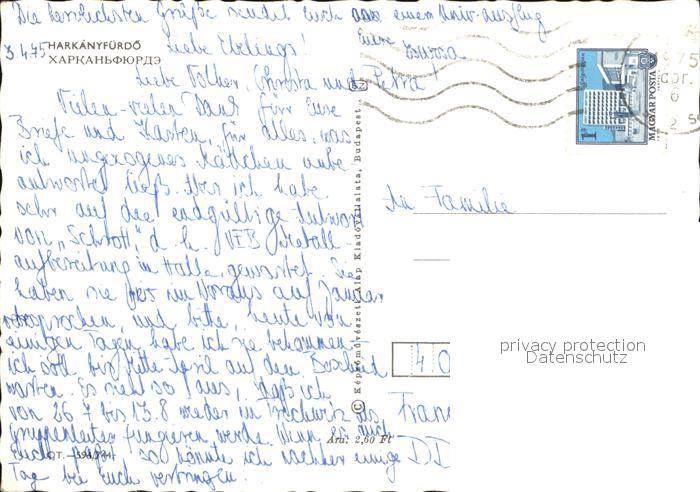 Die herzlichsten Grüße sendet Euch aus einem Univ. ausflug
Eure Zsuzsa
3.4.75
HARKÁNYFÜRDŐ
ХАРКАНЬФЮРДЭ
Liebe Ebelings!
Liebe Volker, Christa und Petra!
Vielen-vielen Dank für Eure
Briefe und Karten, für alles, was
ich ungezogenes Mädchen unbe-
antwortet ließ. Aber ich habe
sehr auf die endgültige Antwort
von „Schrott", d. h. VEB Metall-
aufbereitung in Halle gewartet. Sie
haben sie für im Voraus auf Januar
versprochen, und bitte, heute vor
einigen Tagen habe ich sie bekommen -
ich soll bis Mitte April auf den Bescheid
warten. Es sieht so aus, daß ich
von 26.7 bis 13.8 wieder in als
Gruppenleiter fungieren werde. Wenn es auch
Euch paßt, so könnte ich nachher einige
Tage bei Euch verbringen.
An Familie
4 0
Fran
DD
MAGYAR POSTA
1 Ft
975
6
© Képzőművészeti Alap Kiadóvállalata, Budapest
Ára: 2,60 Ft
privacy protection
Datenschutz